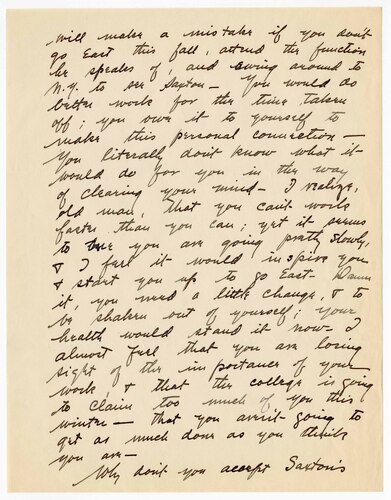 will make a mistake if you don't
go East this fall, attend the function
he speaks of, and swing around to
N.Y. to see Saxton — You would do
better work for the time taken
off; you owe it to yourself to
make this personal connection —
You literally don't know what it
would do for you in the way
of clearing your mind — I realize,
old man, that you can't work
faster than you can; yet it seems
to me you are going pretty slowly,
& I feel it would inspire you
& start you up to go East — Damn
it, you need a little change, & to
be shaken out of yourself; your
health would stand it now — I
almost feel that you are losing
sight of the importance of your
work, & that the college is going
to claim too much of you this
winter — that you ain't going to
get as much done as you think
you are —
Why don't you accept Saxton's